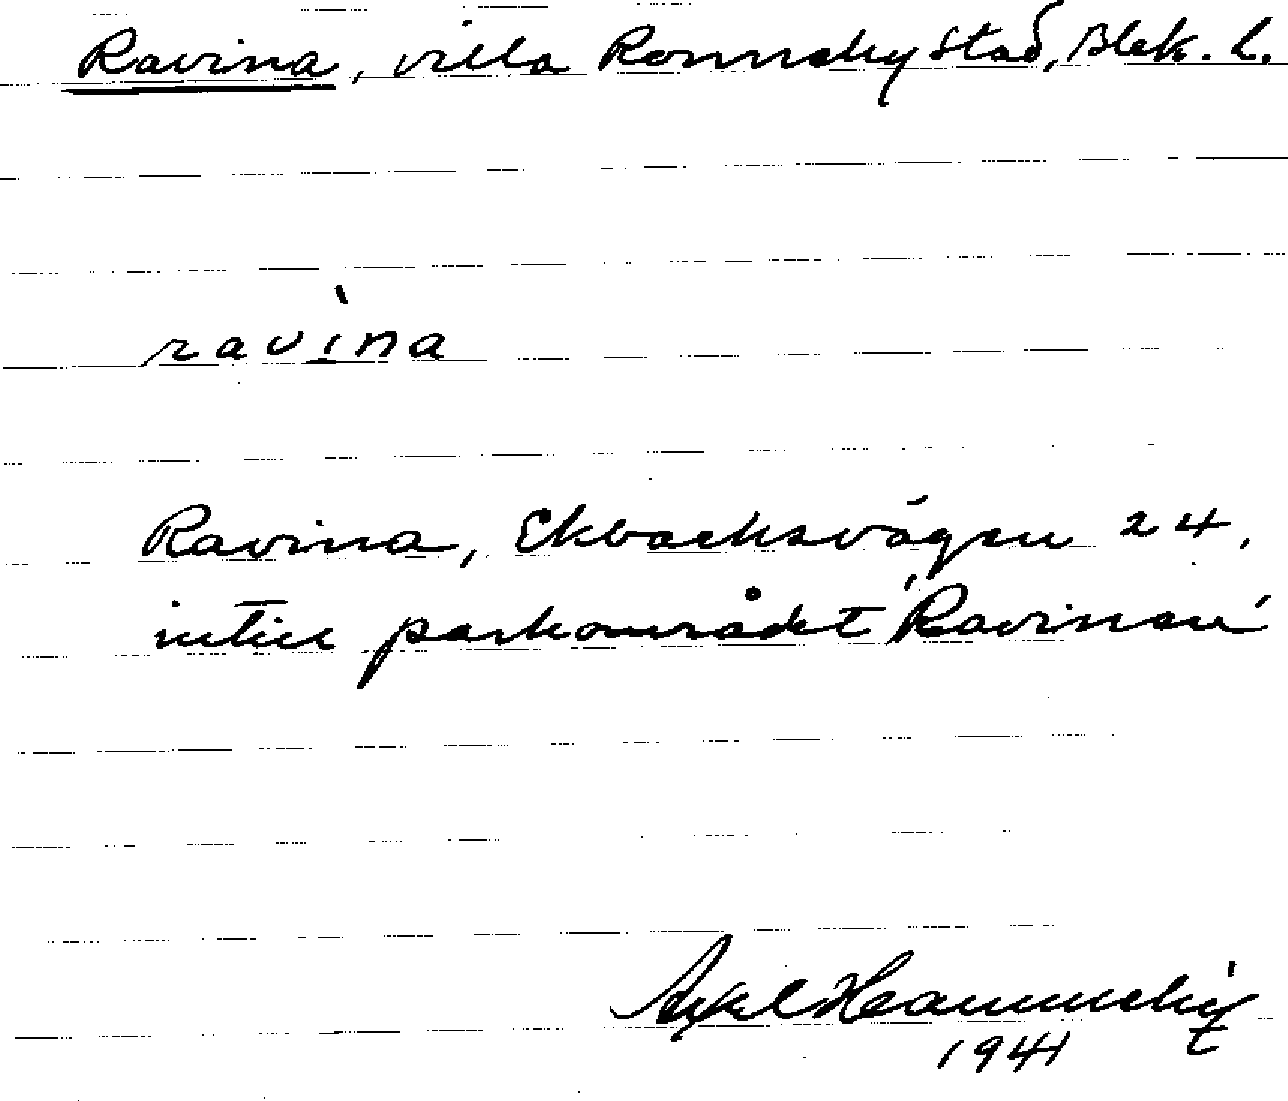 Ravina, villa Ronneby stad, Blek. l.
ravìna
Ravina, Ekbacksvägen 24,
intill parkområdet 'Ravinen'
Axel
1941